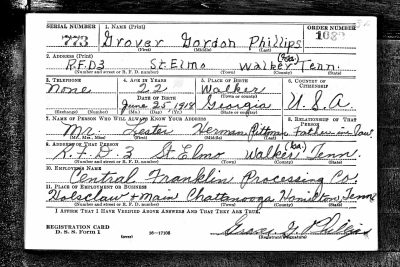 SERIAL NUMBER 1. NAME (Print) ORDER NUMBER
773 Grover Gordon Phillips 1689
(First) (Middle) (Last)
2. ADDRESS (Print)
R.F.D 3 St. Elmo Walker (Ga) Tenn.
(Number and street or R. F. D. number) (Town) (County) (State)
3. TELEPHONE 4. AGE IN YEARS 5. PLACE OF BIRTH 6. COUNTRY OF CITIZENSHIP
None 22 Walker
(Town or county)
DATE OF BIRTH
June 25 1918 Georgia U.S.A
(Exchange) (Number) (Mo.) (Day) (Yr.) (State or country)
7. NAME OF PERSON WHO WILL ALWAYS KNOW YOUR ADDRESS 8. RELATIONSHIP OF THAT PERSON
Mr. Lester Herman Pittman Father in law
(Mr., Mrs., Miss) (First) (Middle) (Last)
9. ADDRESS OF THAT PERSON
R.F.D 3 St Elmo Walker (Ga.) Tenn.
(Number and street or R. F. D. number) (Town) (County) (State)
10. EMPLOYER'S NAME
Central Franklin Processing Co.
11. PLACE OF EMPLOYMENT OR BUSINESS
Holsclaw + Main Chattanooga Hamilton, Tenn
(Number and street or R. F. D. number) (Town) (County) (State)
I AFFIRM THAT I HAVE VERIFIED ABOVE ANSWERS AND THAT THEY ARE TRUE.
REGISTRATION CARD
D. S. S. Form 1 (over) 16—17105 Grover G. Phillips
(Registrant's signature)